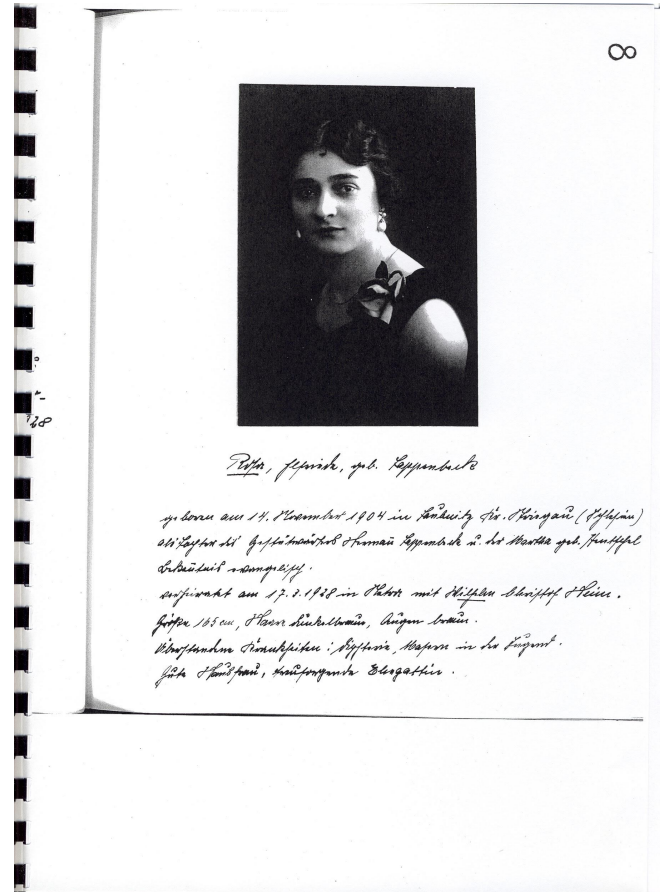 8
28
Rosa, Elfriede, geb. Teppenbeck
geboren am 14. November 1904 in Laubnitz Kr. Striegau (Schlesien)
als Tochter des Gestütwärters Herman Teppenbeck u. der Martha geb. Hentschel
Bekentnis evangelisch.
verheiratet am 17.3.1928 in mit Wilhelm Christof Heim.
Größe 165 cm, Haare dunkelbraun, Augen braun.
Überstandene Krankheiten: Diphterie, Masern in der Jugend.
Gute Hausfrau, treusorgende Ehegattin.